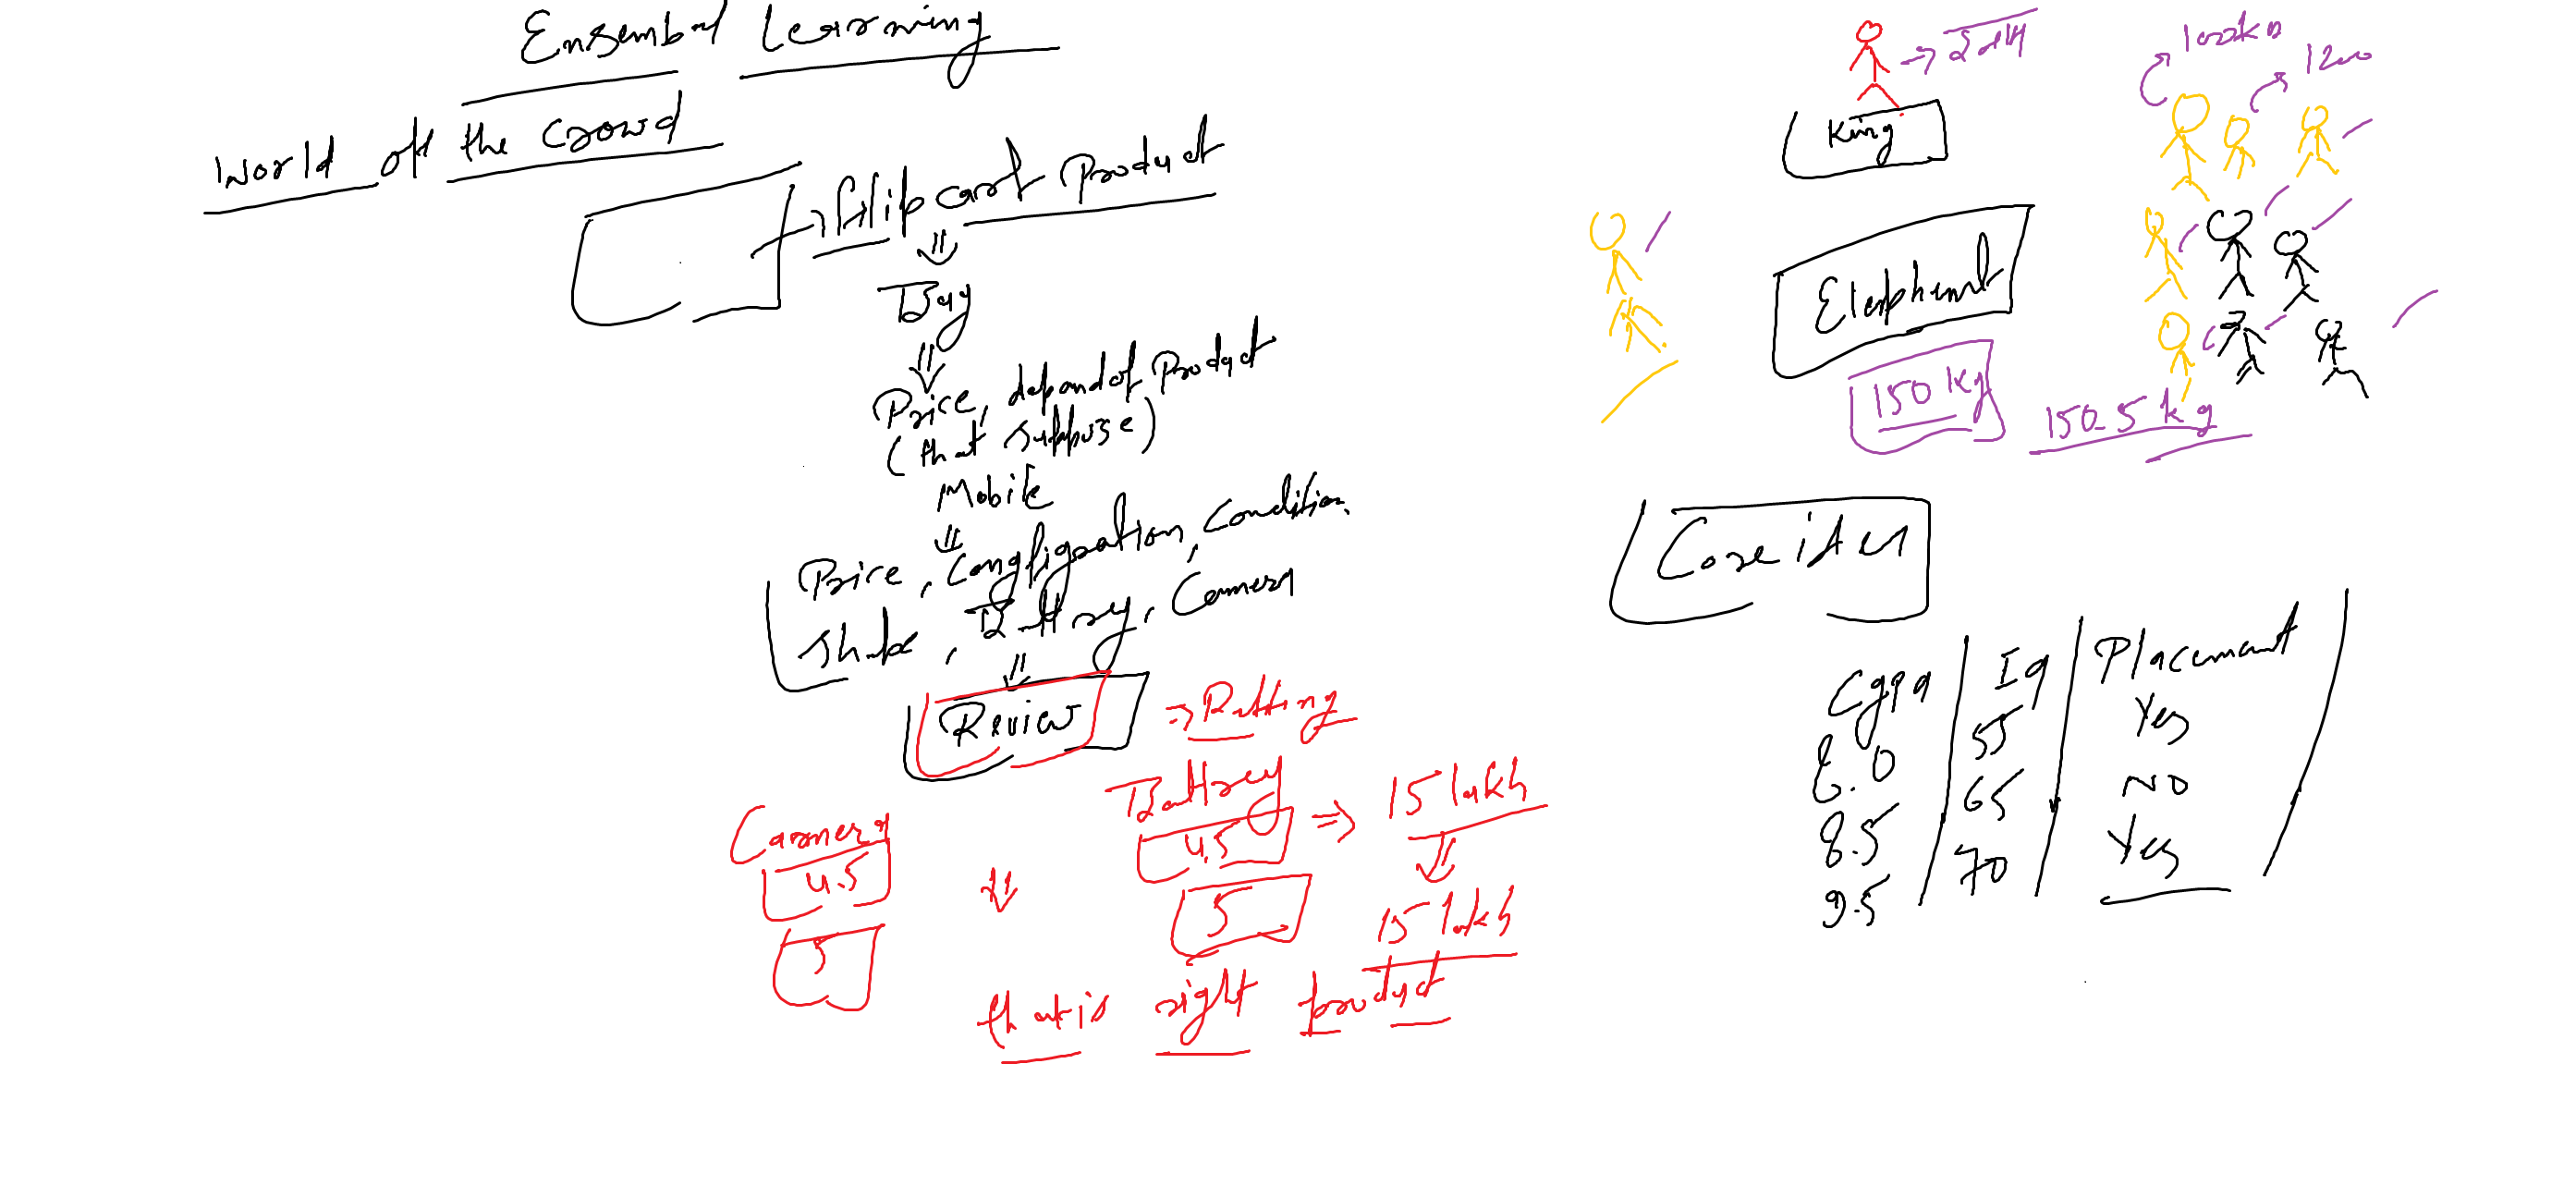 Ensembal Learning
World off the Crowd
Flipcart Product
Buy
Price, depand of Product
(that suppose)
Mobile
Price, Configration, Condition
Shape, Battrey, Camera
Review
Ratting
Camera
4.5
5
Battrey
4.5
15 lakh
5
15 lakh
that is right product
King
1200
Elephant
150 kg
150.5 kg
Cgpa Iq Placement
8.0 55 Yes
8.5 65 NO
9.5 70 Yes